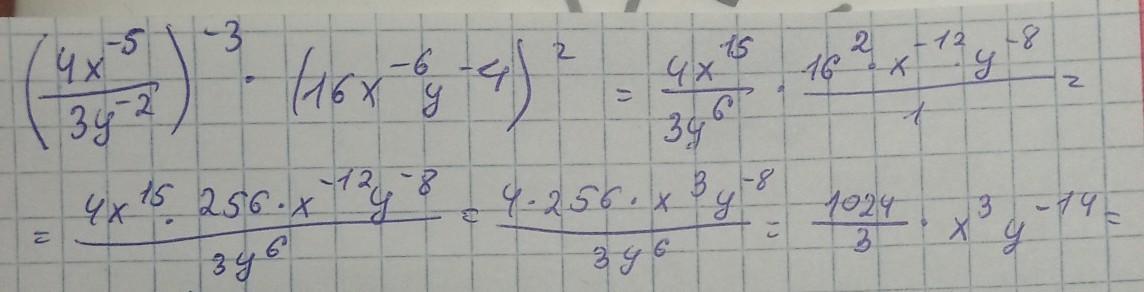 (4x⁻⁵/3y⁻²)⁻³ · (16x⁻⁶y⁻⁴)² = 4x¹⁵/3y⁶ · 16²·x⁻¹²·y⁻⁸/1 =
= 4x¹⁵·256·x⁻¹²y⁻⁸/3y⁶ = 4·256·x³y⁻⁸/3y⁶ = 1024/3 · x³y⁻¹⁴ =